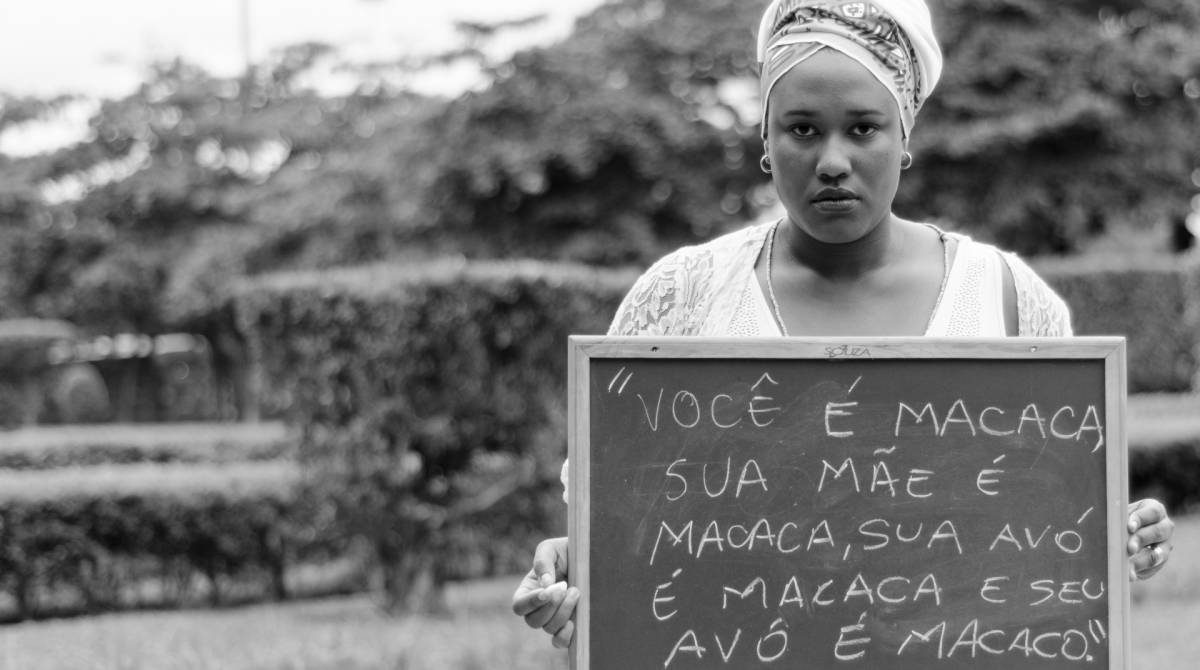 souza
"VOCÊ É MACACA,
SUA MÃE É
MACACA, SUA AVÓ
É MACACA E SEU
AVÔ É MACACO."